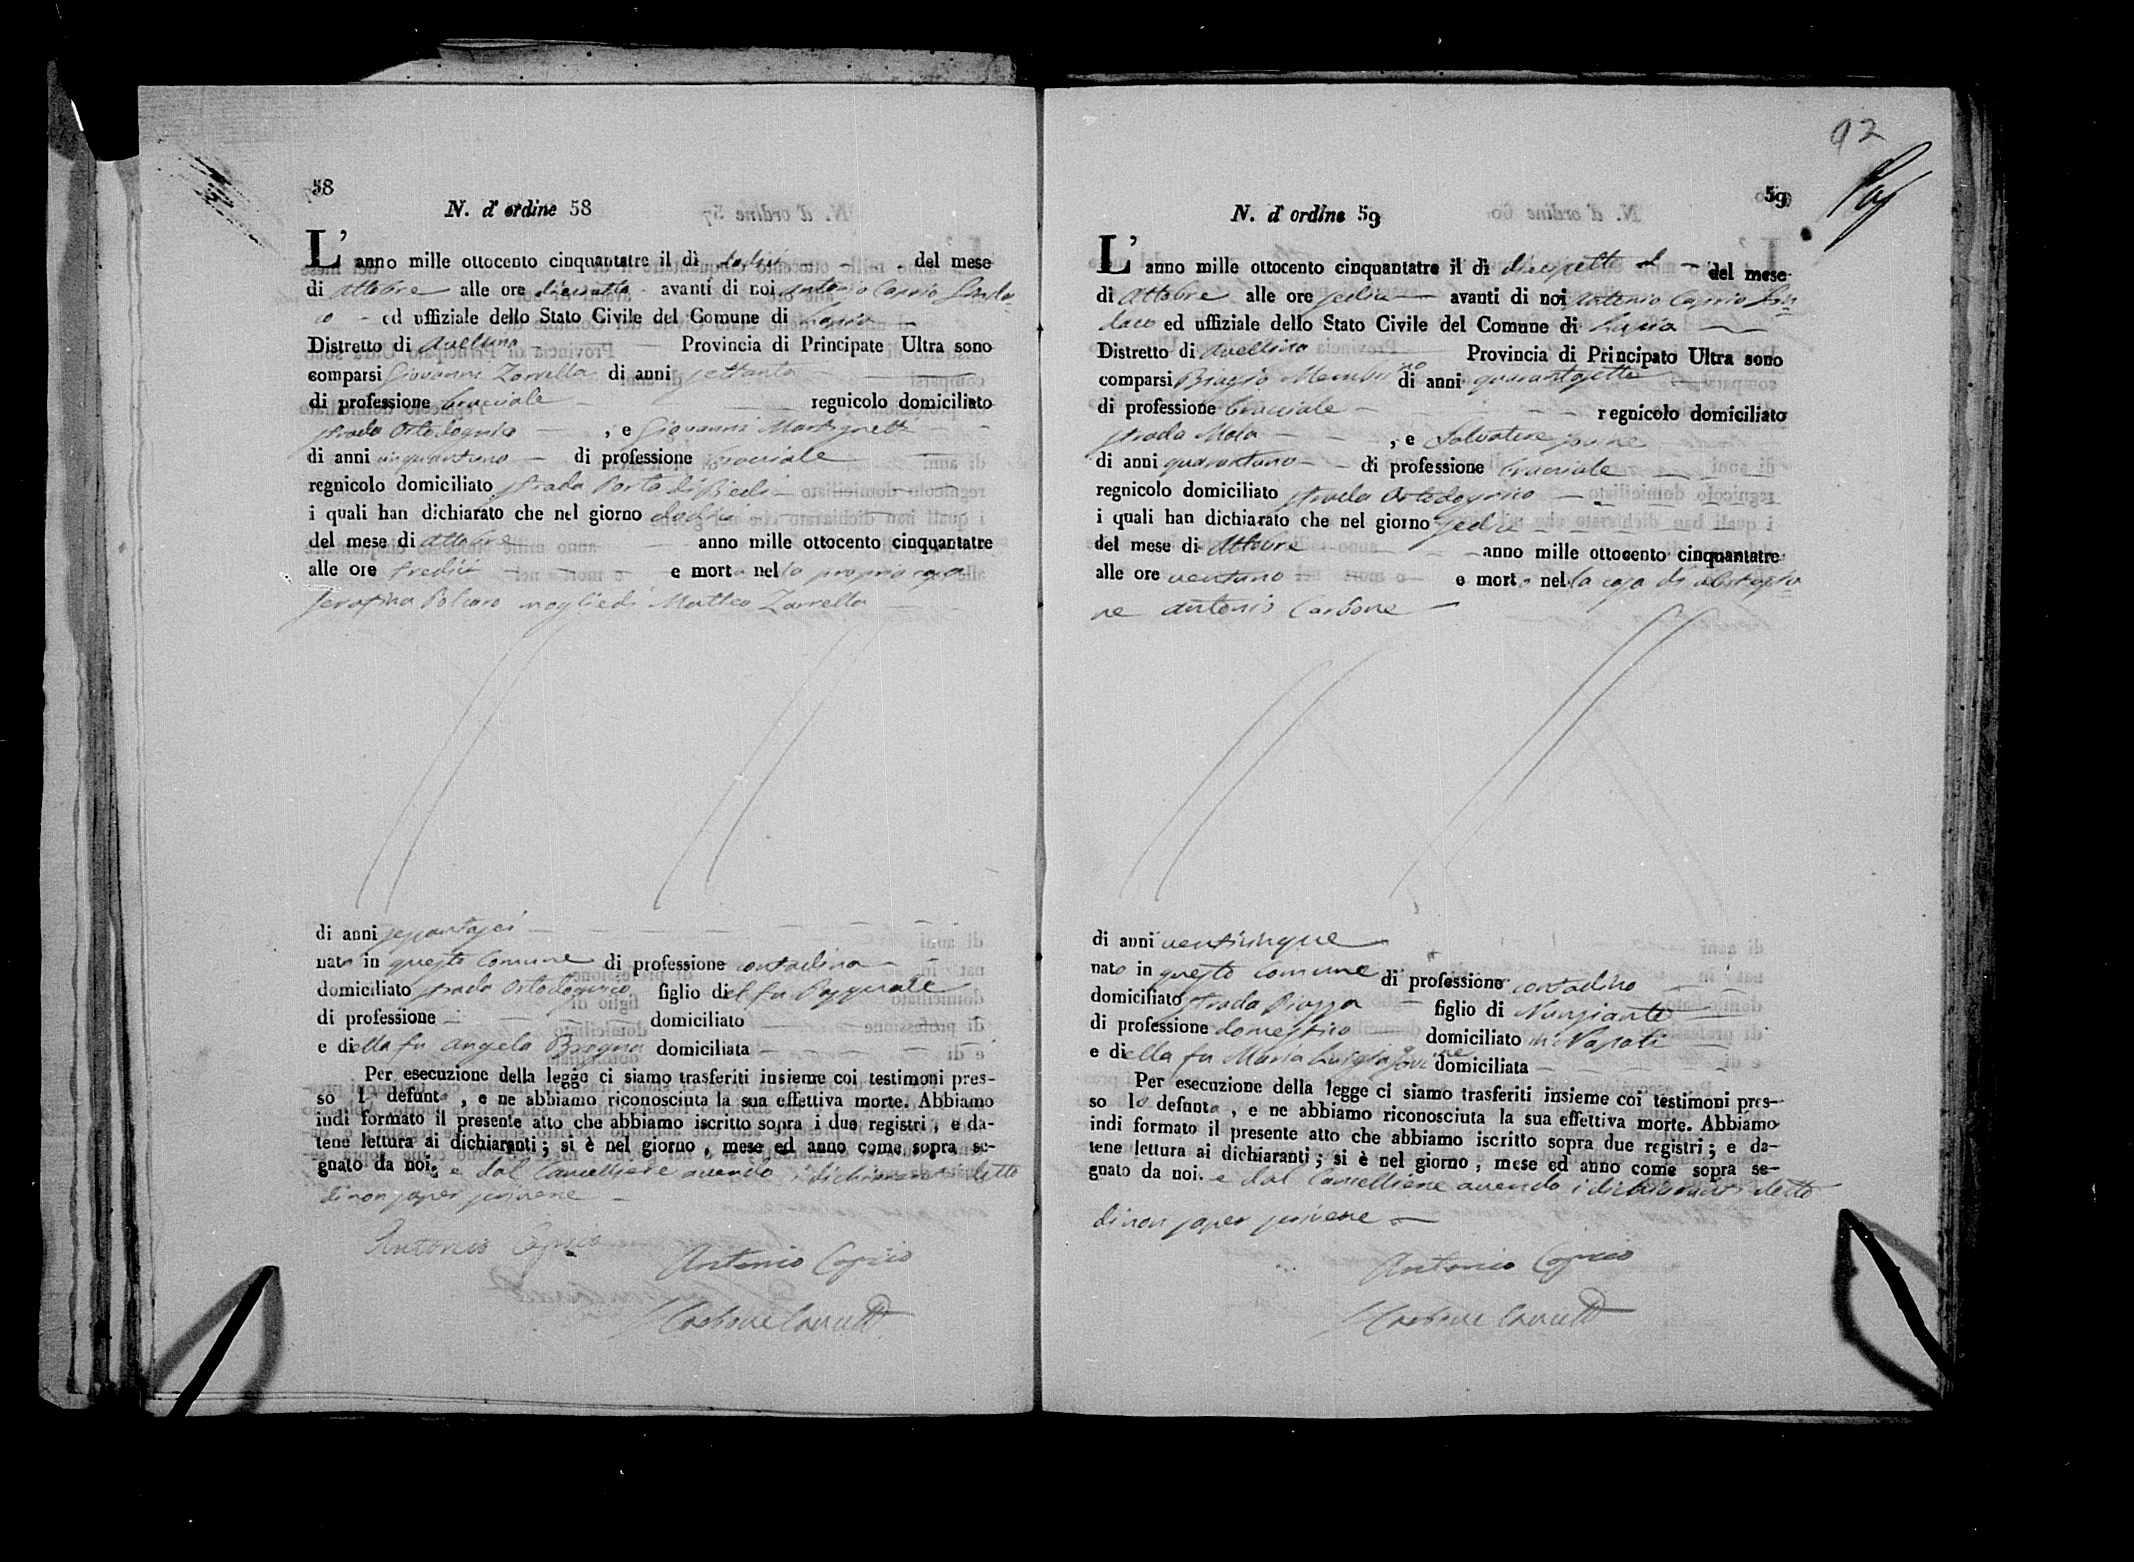 58
N. d' ordine 58
L' anno mille ottocento cinquantatre il dì dodici del mese
di Ottobre alle ore avanti di noi Antonio Caprio Sinda
co ed uffiziale dello Stato Civile del Comune di Lapio
Distretto di Avellino Provincia di Principate Ultra sono
comparsi Giovanni Zarrella di anni settanta
di professione bracciale regnicolo domiciliato
strada , e Giovanni Martignetti
di anni cinquantuno di professione bracciale
regnicolo domiciliato strada Porta di
i quali han dichiarato che nel giorno dodici
del mese di Ottobre anno mille ottocento cinquantatre
alle ore tredici e morta nella propria casa
Serafina Polcaro moglie di Matteo Zarrella
di anni
nata in questo Comune di professione contadina
domiciliato strada figlio del fu Pasquale
di professione domiciliato
e della fu Angela domiciliata
Per esecuzione della legge ci siamo trasferiti insieme coi testimoni pres-
so la defunta , e ne abbiamo riconosciuta la sua effettiva morte. Abbiamo
indi formato il presente atto che abbiamo iscritto sopra i due registri , e da-
tene lettura ai dichiaranti ; si è nel giorno , mese ed anno come sopra se-
gnato da noi. e dal Cancelliere avendo i dichiaranti detto
di non saper scrivere
Antonio Caprio
Antonio Caprio
Carbone
92
59
N. d' ordine 59
L' anno mille ottocento cinquantatre il dì diecisette del mese
di Ottobre alle ore sedici avanti di noi Antonio Caprio Sin
daco ed uffiziale dello Stato Civile del Comune di Lapio
Distretto di Avellino Provincia di Principato Ultra sono
comparsi Biagio di anni quarantasette
di professione bracciale regnicolo domiciliato
strada Mola , e Salvatore
di anni quarantuno di professione bracciale
regnicolo domiciliato strada
i quali han dichiarato che nel giorno sedici
del mese di Ottobre anno mille ottocento cinquantatre
alle ore ventuno e morto nella casa di
ne Antonio Carbone
di anni venticinque
nato in questo comune di professione contadino
domiciliato strada Piazza figlio di Nunziante
di professione domestico domiciliato in Napoli
e della fu Maria Luigia domiciliata
Per esecuzione della legge ci siamo trasferiti insieme coi testimoni pres-
so lo defunto , e ne abbiamo riconosciuta la sua effettiva morte. Abbiamo
indi formato il presente atto che abbiamo iscritto sopra due registri ; e da-
tene lettura ai dichiaranti ; si è nel giorno , mese ed anno come sopra se-
gnato da noi. e dal Cancelliere avendo i dichiaranti detto
di non saper scrivere
Antonio Caprio
Carbone